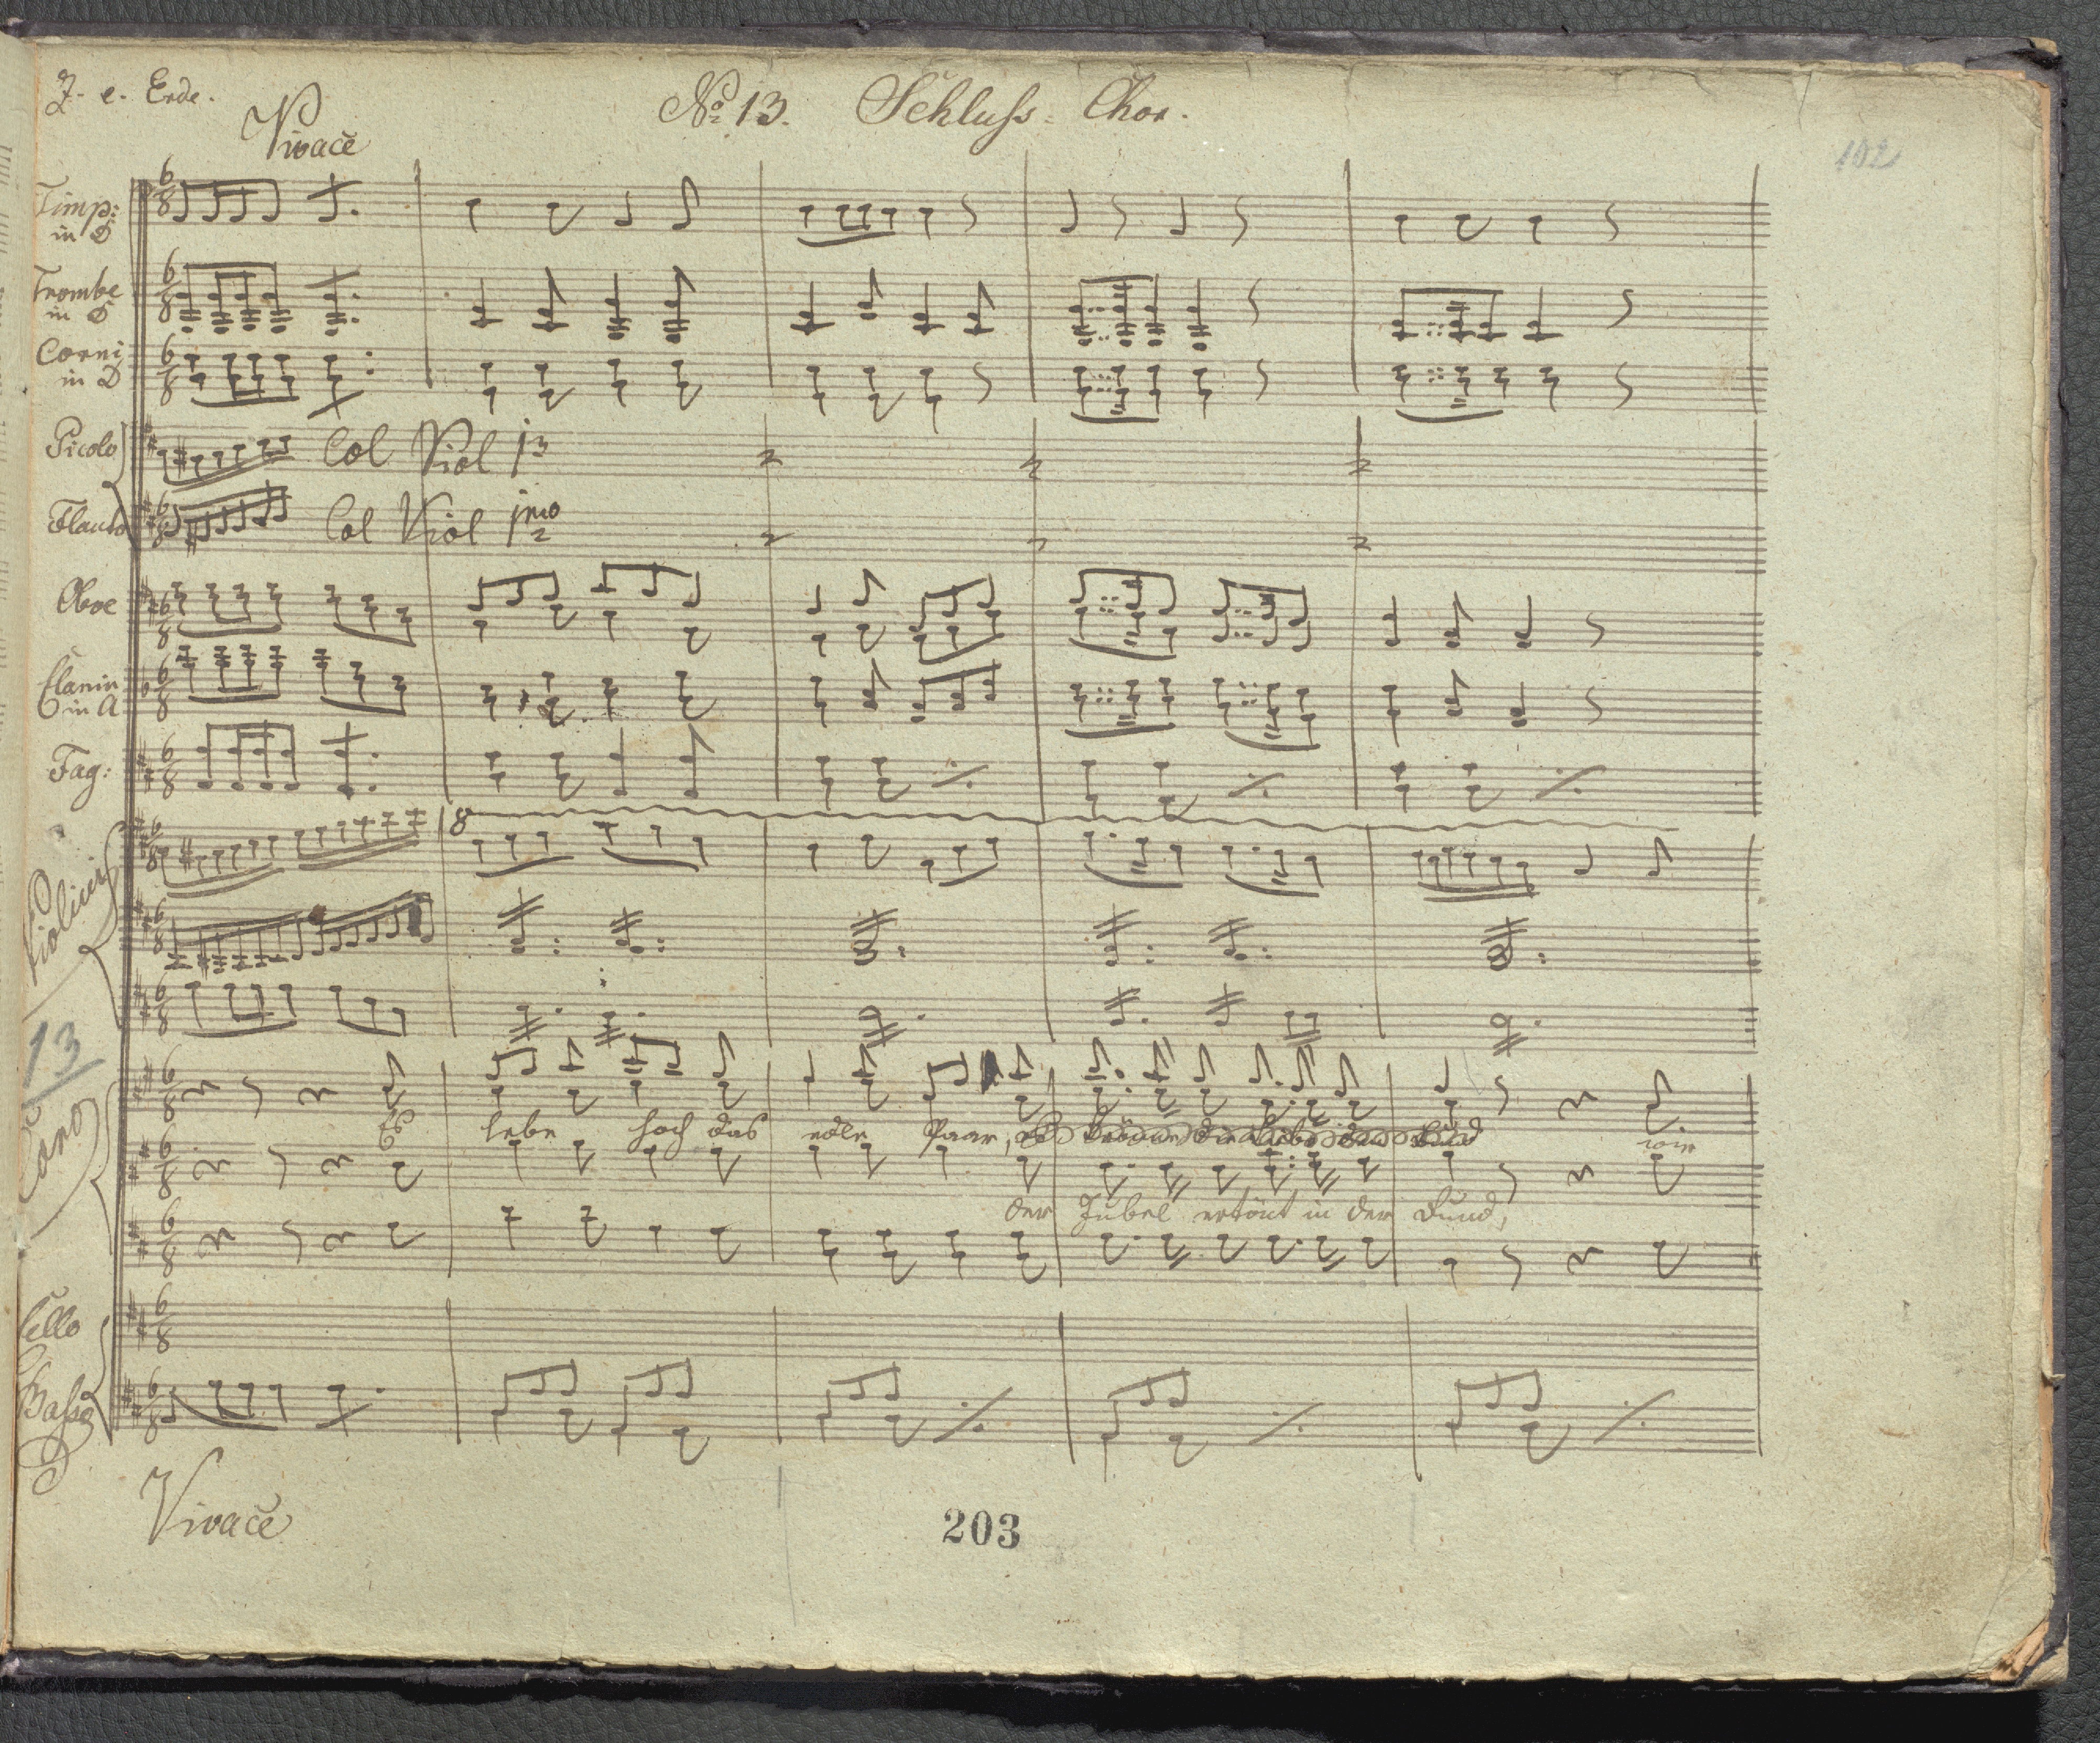 Z. e. Erde.
Vivace
No. 13. Schluss-Chor.
102
Timp:
in D
Trombe
in D
Corni
in D
Picolo
Col Viol
Flauto
Col Viol 1mo
Oboe
Clarin
in A
Fag:
8
Violini
13
Es lebe hoch das edle Paar, wie
der Jubel ertönt in der Rund,
Cello
Basso
Vivace
203